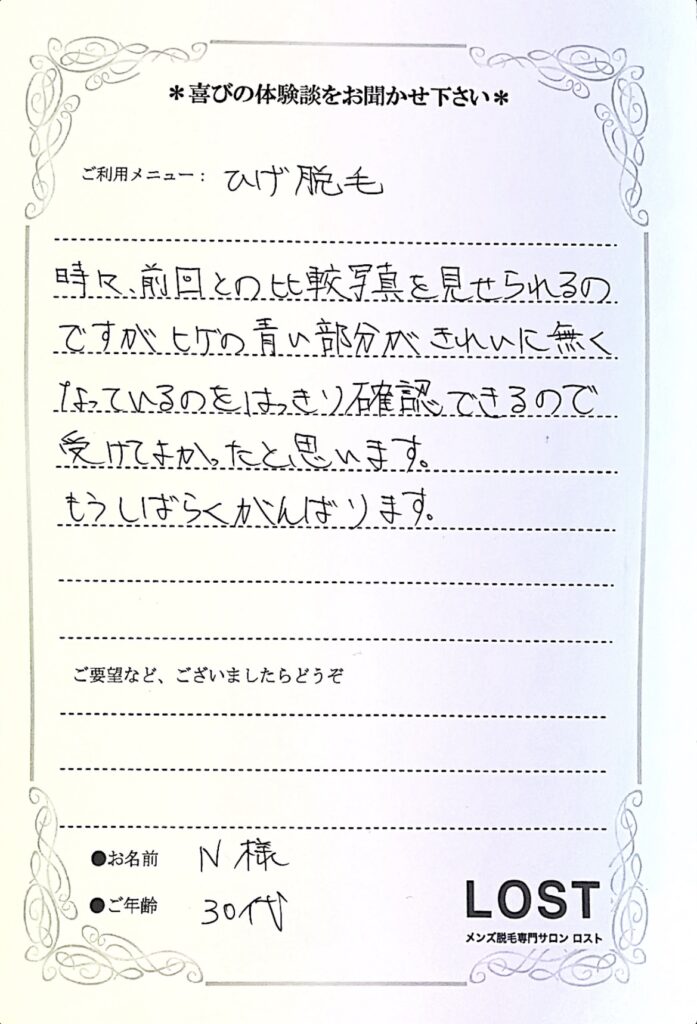 ＊喜びの体験談をお聞かせ下さい＊
ご利用メニュー： ひげ脱毛
時々、前回との比較写真を見せられるの
ですがヒゲの青い部分がきれいに無く
なっているのをはっきり確認できるので
受けてよかったと思います。
もうしばらくがんばります。
ご要望など、ございましたらどうぞ
●お名前 N様
●ご年齢 30代
LOST
メンズ脱毛専門サロン ロスト